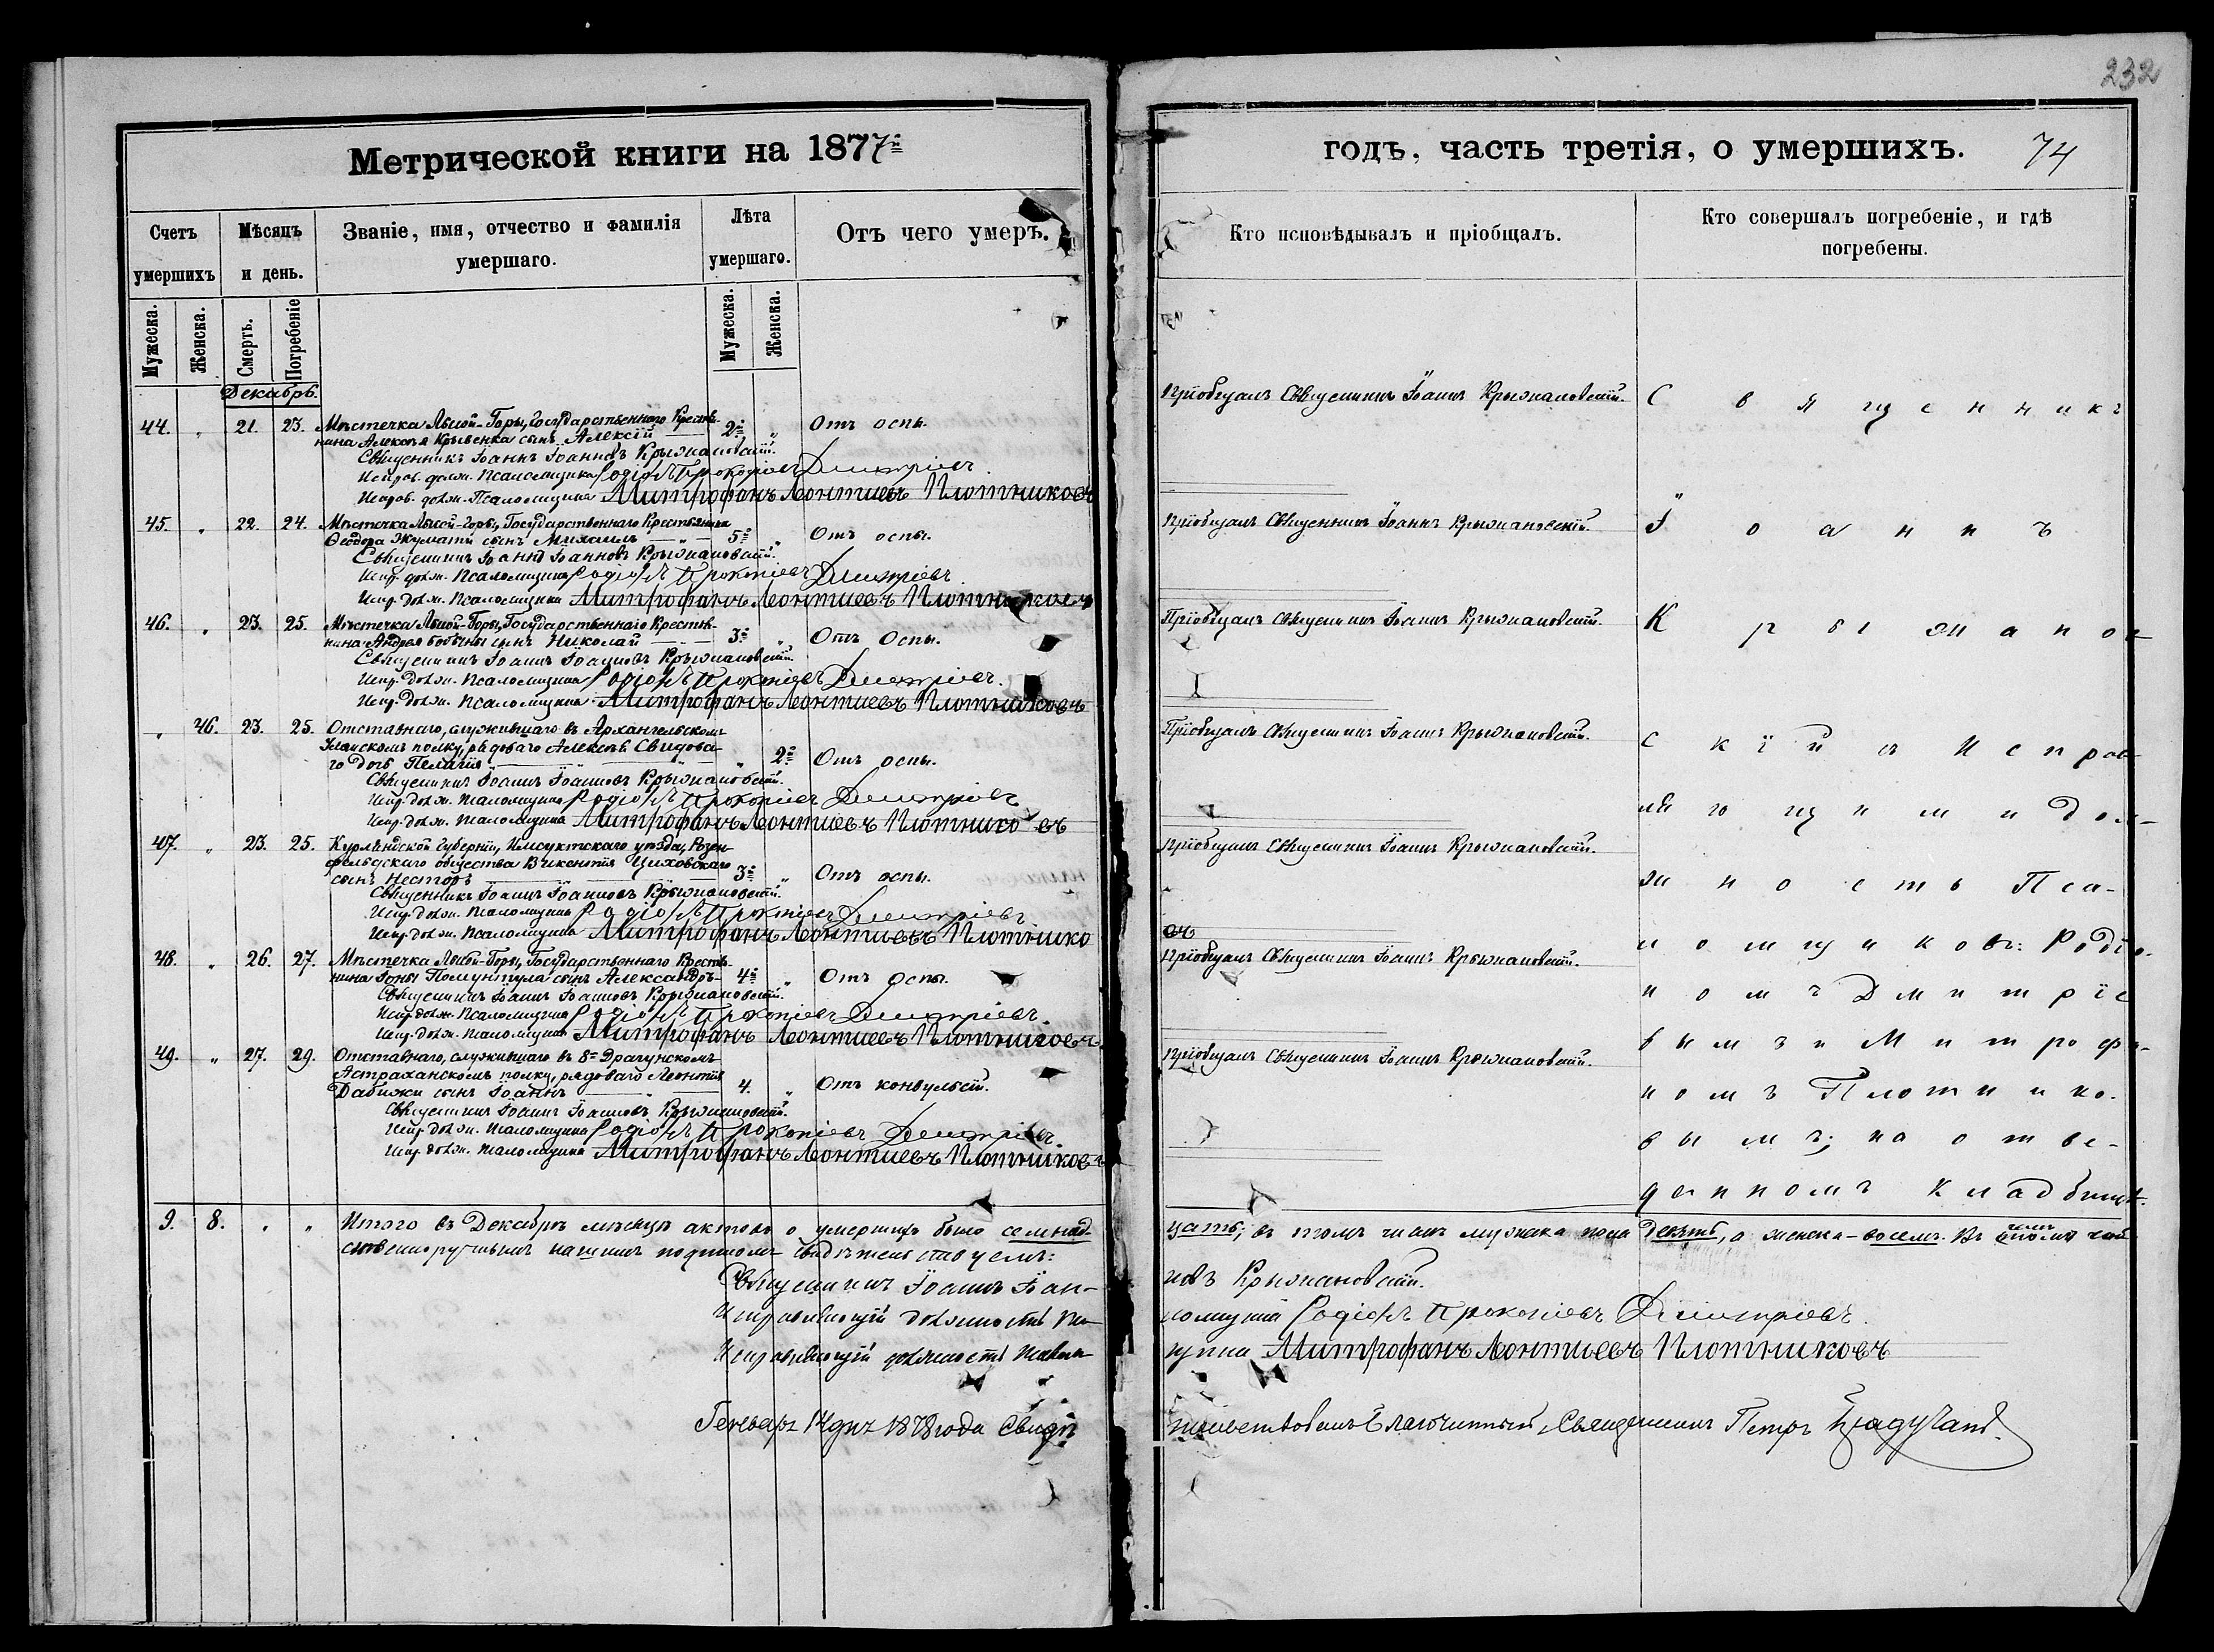 232
Метрической книги на 1877й
годъ, часть третія, о умершихъ.
74
Счетъ умершихъ
Мѣсяцъ и день.
Званіе, имя, отчество и фамилія умершаго.
Лѣта умершаго.
Отъ чего умеръ.
Кто исповѣдывалъ и пріобщалъ.
Кто совершалъ погребеніе, и гдѣ погребены.
Мужеска.
Женска.
Смерть.
Погребеніе
Мужеска.
Женска.
Декабрь.
44. " 21. 23. Мѣстечка Лысой-Горы, Государственнаго Крестья-
нина Алексѣя Кривенка сынъ Алексій — 2хъ " Отъ оспы.
Священникъ Іоаннъ Іоанновъ Крыжановскій.
Исправ. долж. Псаломщика Родіонъ Прокофіевъ Димитріевъ.
Исправ. долж. Псаломщика Митрофанъ Леонтиевъ Плотниковъ
45. " 22. 24. Мѣстечка Лысой-Горы, Государственнаго Крестьянина
Ѳеодора Жумати сынъ Михаилъ — " — 5 " Отъ оспы.
Священникъ Іоаннъ Іоанновъ Крыжановскій.
Испр. долж. Псаломщика Родіонъ Прокопіевъ Димитріевъ.
Испр. долж. Псаломщика Митрофанъ Леонтиевъ Плотниковъ
46. " 23. 25. Мѣстечка Лысой-Горы, Государственнаго Крестья-
нина Андрея сынъ Николай — 3 " Отъ Оспы.
Священникъ Іоаннъ Іоанновъ Крыжановскій.
Испр. долж. Псаломщика Родіонъ Прокопіевъ Димитріевъ.
Испр. долж. Псаломщика Митрофанъ Леонтиевъ Плотниковъ
" 46. 23. 25. Отставнаго, служившаго въ Архангельскомъ
Уланскомъ полку, рядоваго Алексѣя Свидова-
го дочь Пелагія — " 2 Отъ оспы.
Священникъ Іоаннъ Іоанновъ Крыжановскій.
Испр. долж. Псаломщика Родіонъ Прокопіевъ Димитріевъ
Испр. долж. Псаломщика Митрофанъ Леонтиевъ Плотниковъ
47. " 23. 25. Курляндской Губерніи, Илукстскаго уѣзда, Розен-
фельдскаго общества Викентія Циховскаго
сынъ Несторъ — 3 " Отъ оспы.
Священникъ Іоаннъ Іоанновъ Крыжановскій.
Испр. долж. Псаломщика Родіонъ Прокопіевъ Димитріевъ
Испр. долж. Псаломщика Митрофанъ Леонтиевъ Плотнико
въ
48. " 26. 27. Мѣстечка Лысой-Горы, Государственнаго Кресть-
нина Іоны сынъ Александръ — 4 " Отъ Оспы.
Священникъ Іоаннъ Іоанновъ Крыжановскій.
Испр. долж. Псаломщика Родіонъ Прокопіевъ Димитріевъ.
Испр. долж. Псаломщика Митрофанъ Леонтиевъ Плотниковъ
49. " 27. 29. Отставнаго, служившаго въ 8мъ Драгунскомъ
Астраханскомъ полку, рядоваго Леонтія
Дабижи сынъ Іоаннъ — 4. " Отъ конвульсій.
Священникъ Іоаннъ Іоанновъ Крыжановскій.
Испр. долж. Псаломщика Родіонъ Прокопіевъ Димитріевъ.
Испр. долж. Псаломщика Митрофанъ Леонтиевъ Плотниковъ
Пріобщалъ Священникъ Іоаннъ Крыжановскій.
Пріобщалъ Священникъ Іоаннъ Крыжановскій.
Пріобщалъ Священникъ Іоаннъ Крыжановскій.
Пріобщалъ Священникъ Іоаннъ Крыжановскій.
Пріобщалъ Священникъ Іоаннъ Крыжановскій.
Пріобщалъ Священникъ Іоаннъ Крыжановскій.
Пріобщалъ Священникъ Іоаннъ Крыжановскій.
Священникъ
Іоаннъ
Крыжанов-
скій съ Исправ-
ляющими дол-
жность Пса-
ломщиковъ: Родіо-
номъ Дмитріе
вымъ и Митрофа-
номъ Плотнико-
вымъ; на отве-
денномъ кладбищѣ.
9. 8. " " Итого въ Декабрѣ мѣсяцѣ актовъ о умершихъ было семнад-
цать; въ томъ числѣ мужеска пола девять, а женска - восемь. Въ чемъ
собственноручнымъ нашимъ подписомъ свидѣтельствуемъ:
Священникъ Іоаннъ Іоан-
новъ Крыжановскій.
Исправляющій должность Пса-
ломщика Родіонъ Прокопіевъ Димитріевъ.
Исправляющій должность Псалом-
щика Митрофанъ Леонтиевъ Плотниковъ
Генваря 14 дня 1878 года Свидѣ
тельствовалъ Благочинный, Священникъ Петръ